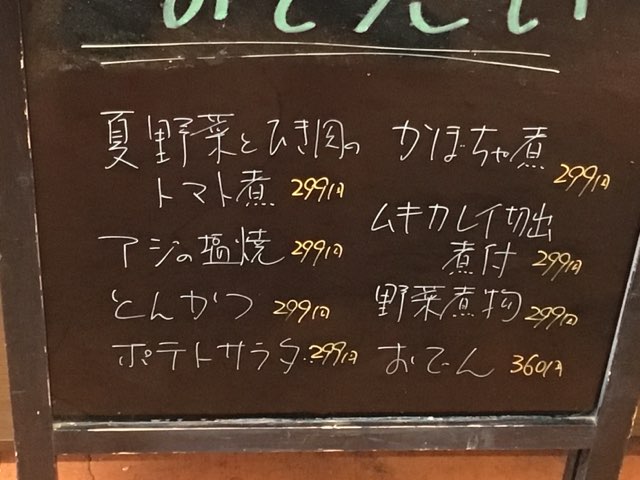 夏野菜とひき肉の
トマト煮 299円
アジの塩焼 299円
とんかつ 299円
ポテトサラダ 299円
かぼちゃ煮 299円
ムキカレイ切出
煮付 299円
野菜煮物 299円
おでん 360円